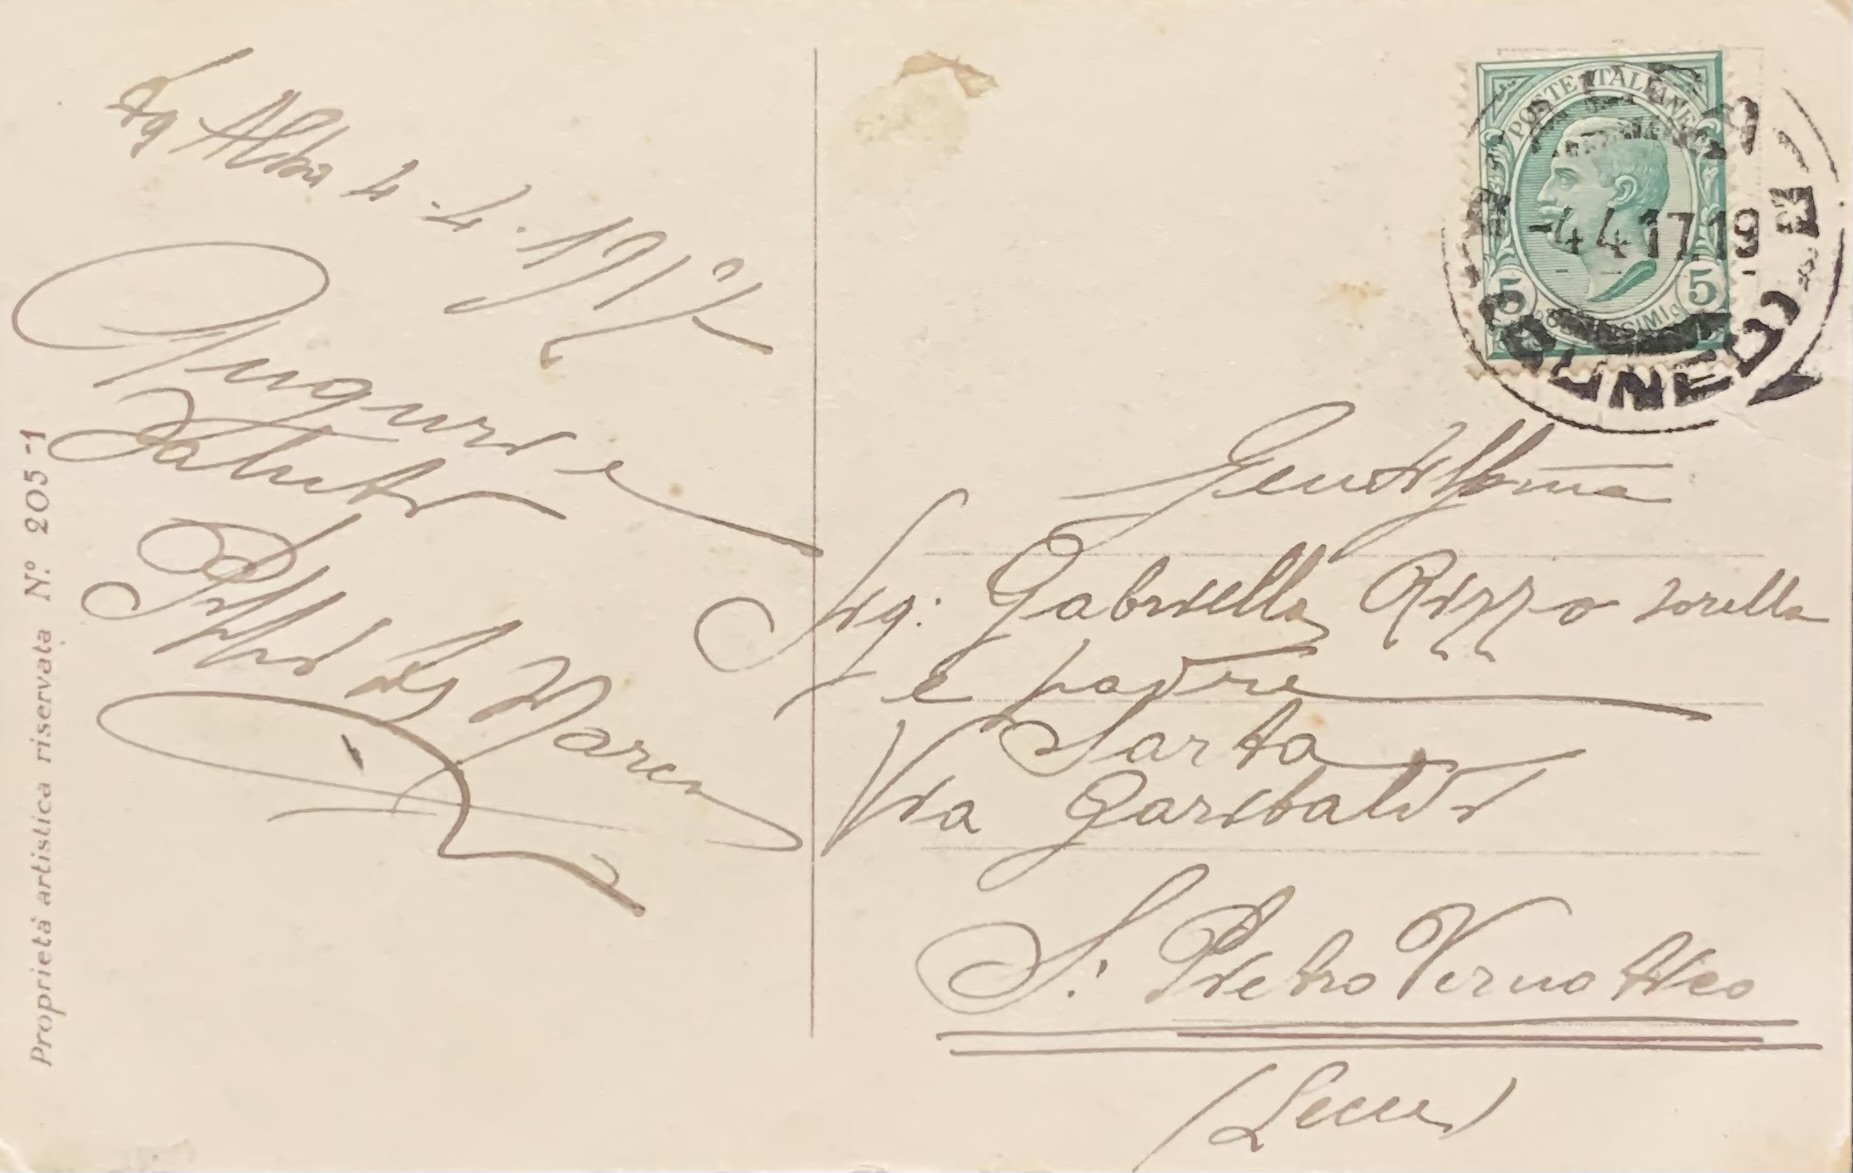 Alba 4-4-1917
Auguri e
Saluti
De Marco
Proprietà artistica riservata N.° 205-1
POSTE ITALIANE
5 5
-4.4.17.19
(CUNEO)
Gentilissima
Sig: Gabriella Rizzo sorella
e padre
Sarta
Via Garibaldi
S. Pietro Vernotico
(Lecce)